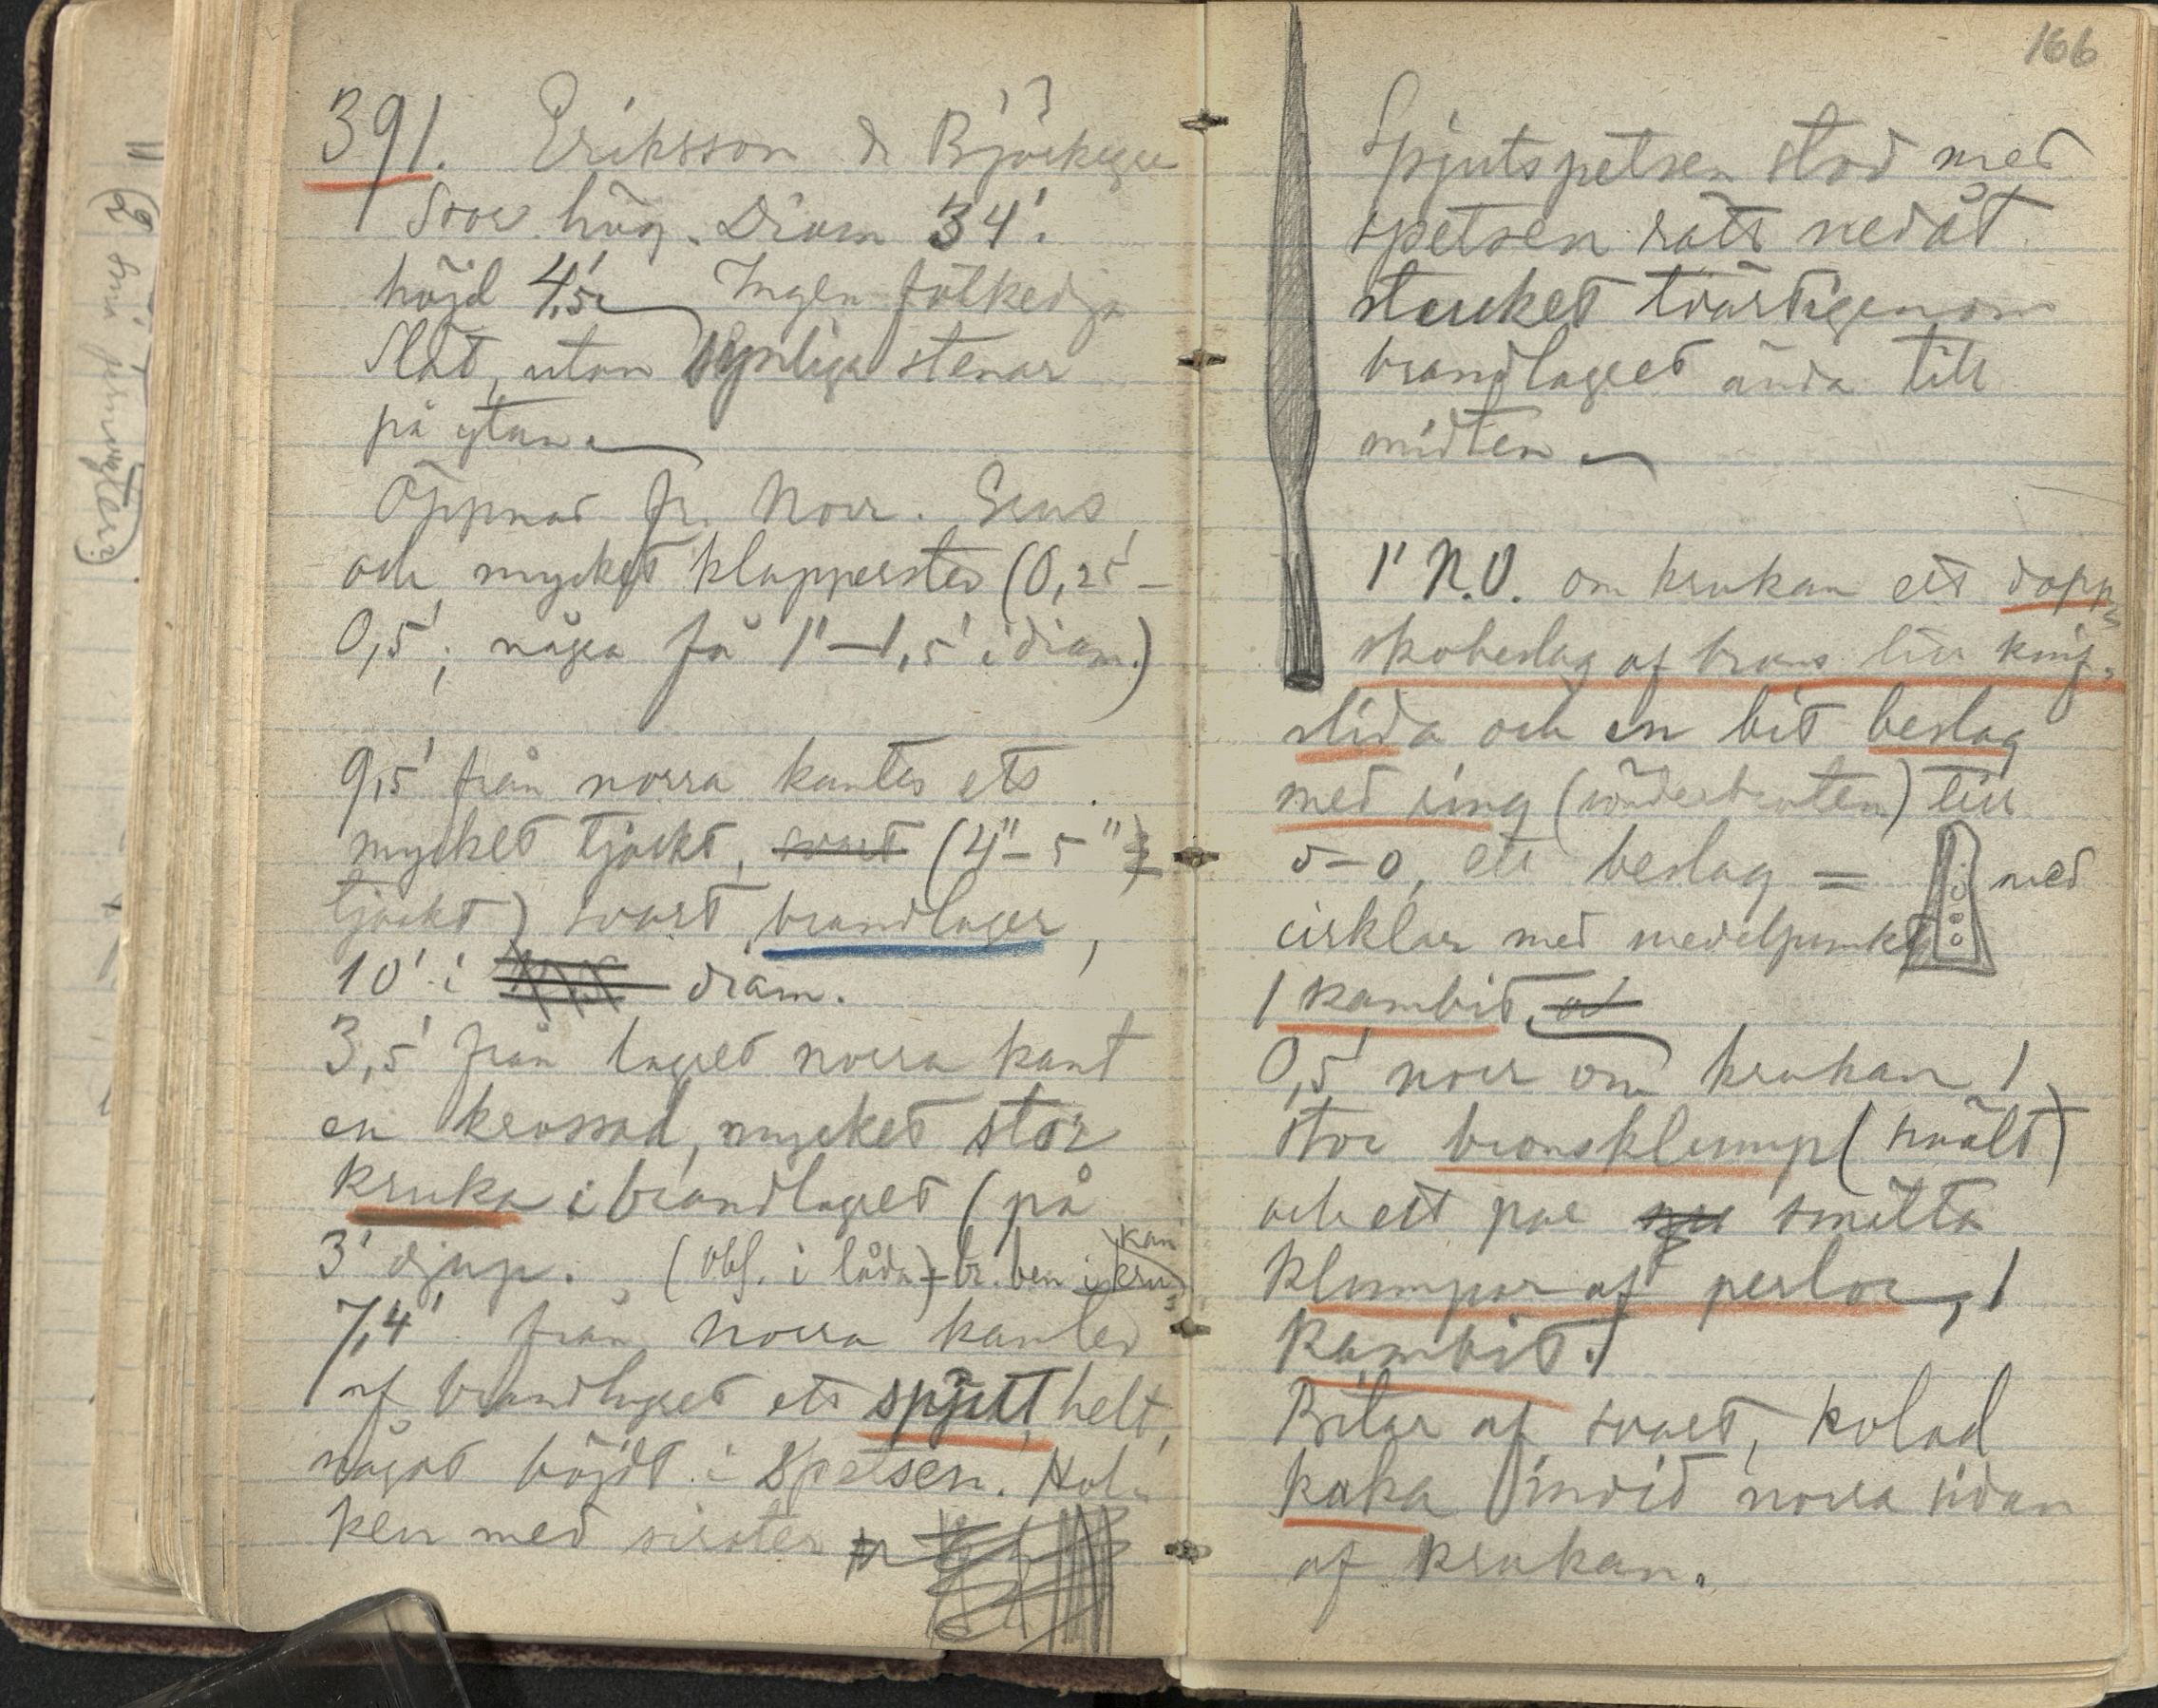 391. Eriksson &
Stor hög. Diam 34'.
höjd 4,5 Ingen fotkedja
Slät, utan synliga stenar
på ytan.
Öppnad fr. Norr. Grus
och mycket klappersten (0,25'-
0,5'; några få 1'-1,5' i diam.)
9,5' från norra kanten ett
mycket tjockt, svart (4"-5"
tjockt) svart brandlager,
10' i diam.
3,5' från lagrets norra kant
en krossad, mycket stor
kruka i brandlagret (på
3' djup. (obs. i låda) br. ben i kru
kan
7,4' från norra kanten
af brandlagret ett spjut, helt,
något böjdt i spetsen. Hol-
ken med sirater
166
Spjutspetsen stod med
spetsen rätt nedåt
stucket tvärtigenom
brandlagret ända till
midten
1' N.O. om krukan ett dopp-
skobeslag af brons till knif-
slida och en bit beslag
med ring (sönderbruten) till
5-0, ett beslag = med
cirklar med medelpunkt
1 kambit,
0,5' norr om krukan 1
stor bronsklump (smält)
och ett par smälta
klumpar af perlor, 1
kambit.
Bitar af svart, kolad
kaka invid norra sidan
af krukan.